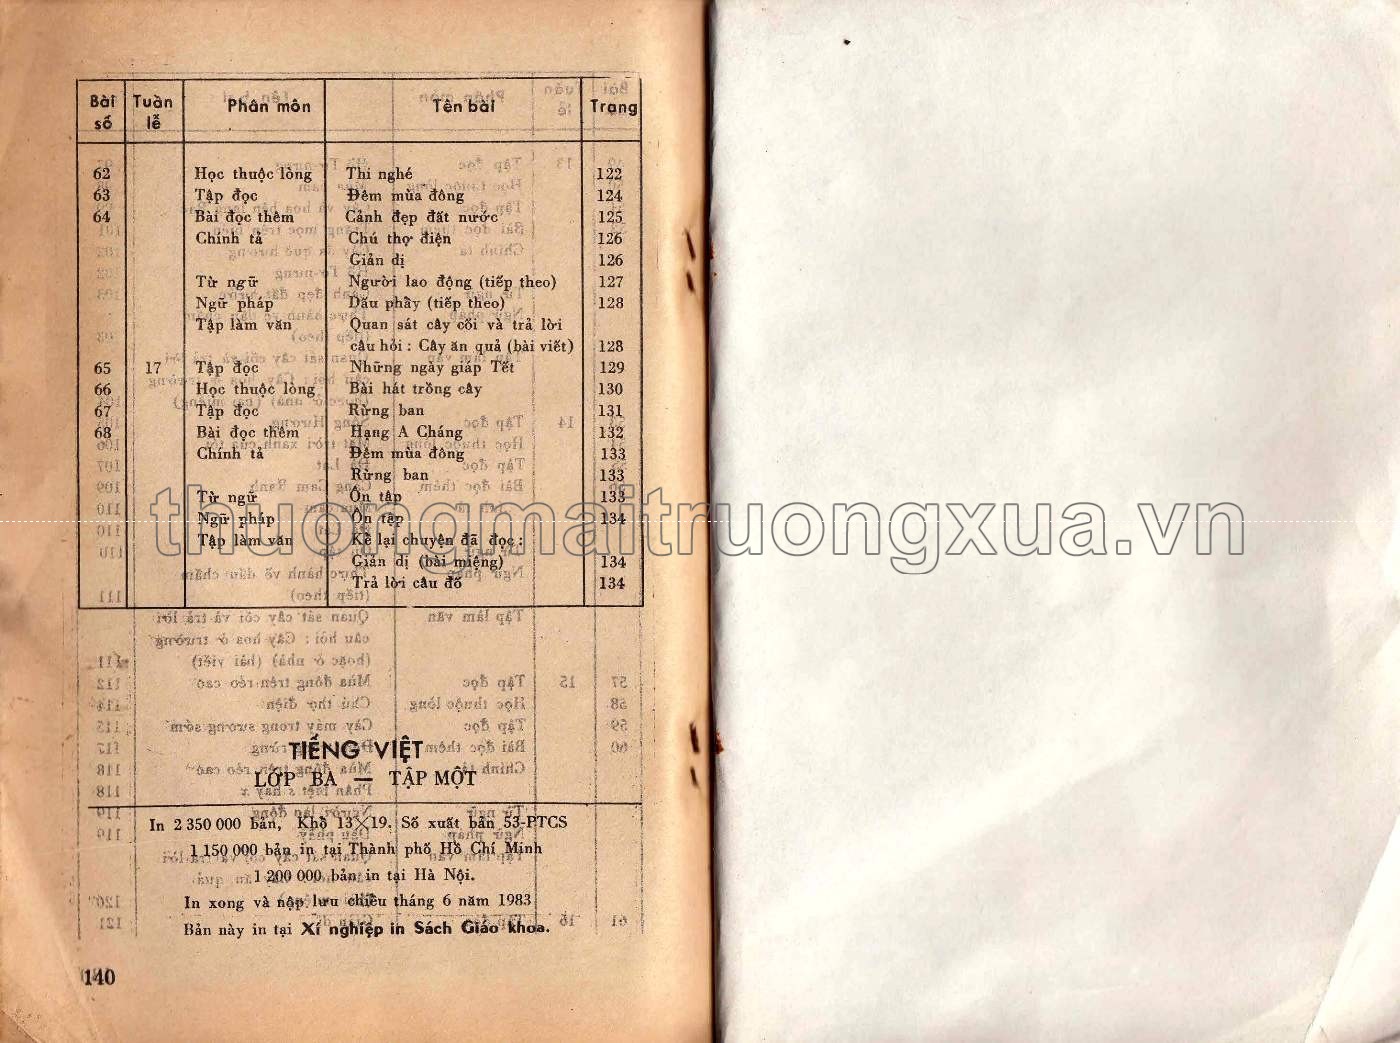 Bài số Tuần lễ Phân môn Tên bài Trang
62 Học thuộc lòng Thi nghé 122
63 Tập đọc Đêm mùa đông 124
64 Bài đọc thêm Cảnh đẹp đất nước 125
Chính tả Chú thợ điện 126
Giản dị 126
Từ ngữ Người lao động (tiếp theo) 127
Ngữ pháp Dấu phẩy (tiếp theo) 128
Tập làm văn Quan sát cây cối và trả lời
câu hỏi : Cây ăn quả (bài viết) 128
65 17 Tập đọc Những ngày giáp Tết 129
66 Học thuộc lòng Bài hát trồng cây 130
67 Tập đọc Rừng ban 131
68 Bài đọc thêm Hạng A Cháng 132
Chính tả Đêm mùa đông 133
Rừng ban 133
Từ ngữ Ôn tập 133
Ngữ pháp Ôn tập 134
Tập làm văn Kể lại chuyện đã đọc :
Giản dị (bài miệng) 134
Trả lời câu đố 134
thuongmaitruongxua.vn
TIẾNG VIỆT
LỚP BA — TẬP MỘT
In 2 350 000 bản, Khổ 13×19. Số xuất bản 53-PTCS
1 150 000 bản in tại Thành phố Hồ Chí Minh
1 200 000 bản in tại Hà Nội.
In xong và nộp lưu chiểu tháng 6 năm 1983
Bản này in tại Xí nghiệp in Sách Giáo khoa.
140